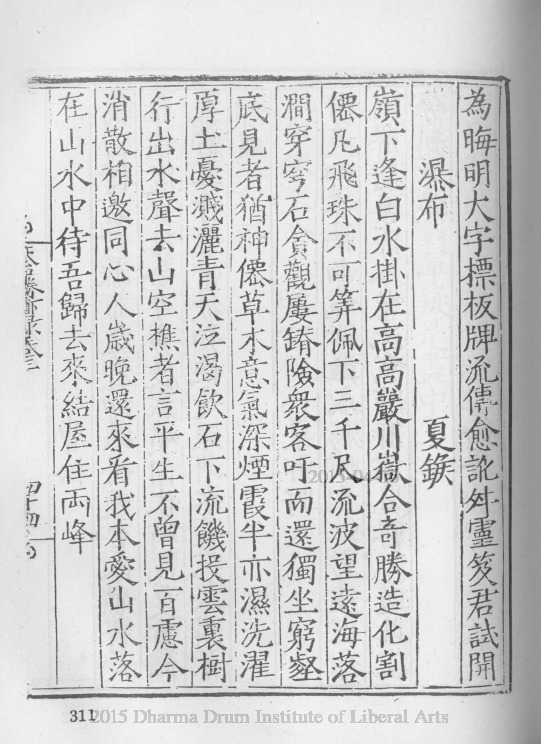 為晦明大字摽板牌流傳愈訛舛靈笈君試開
瀑布 夏鍭
嶺下逢白水掛在高高巖川嶽合奇勝造化割
僊凡飛珠不可筭佩下三千尺流波望遠海落
澗穿穹石貪觀屢錯險衆客吁而還獨坐窮壑
底見者猶神僊草木意氣深煙霞半亦濕洗濯
厚土憂濺灑青天泣渴飲石下流饑拔雲裏樹
行出水聲去山空樵者言平生不曾見百慮今
消散相邀同心人歲晚還來看我本愛山水落
在山水中待吾歸去來結屋住兩峰
四十四
311
2015 Dharma Drum Institute of Liberal Arts